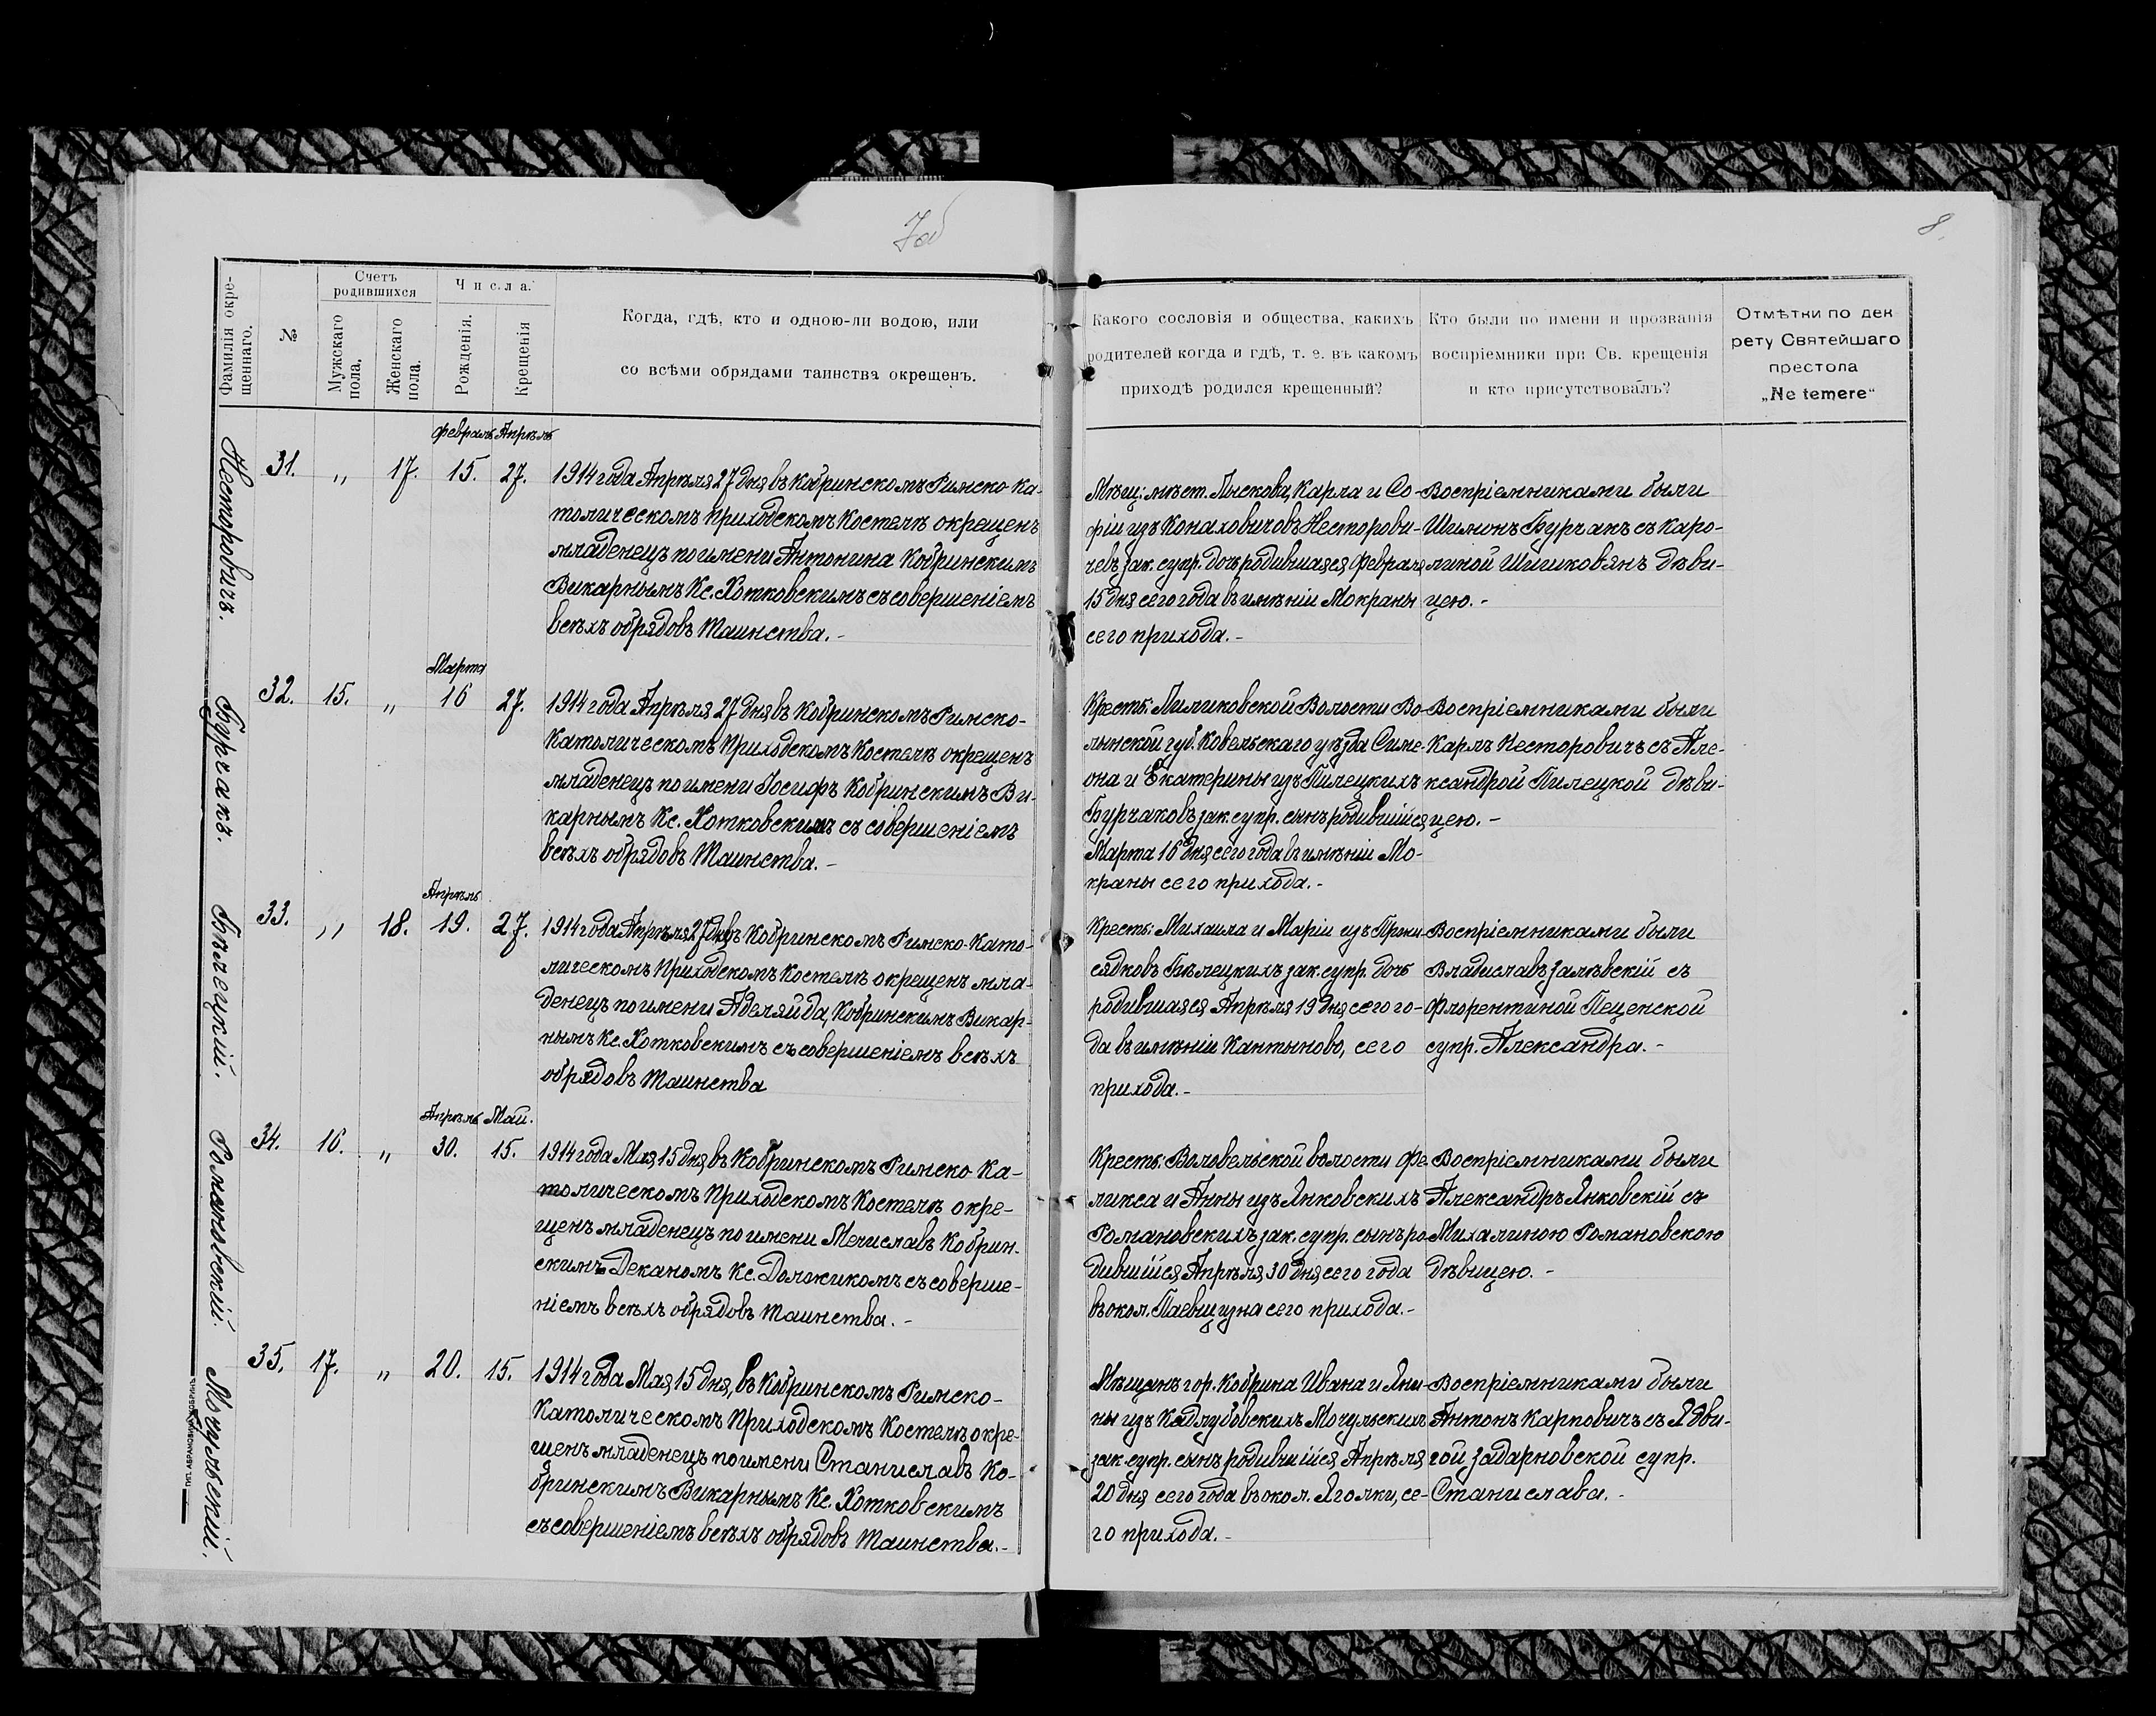 7об
8.
Фамилія окре-
щеннаго.
№
Счетъ
родившихся
Мужскаго
пола.
Женскаго
пола.
Числа.
Рожденія.
Крещенія
Когда, гдѣ, кто и одною-ли водою, или
со всѣми обрядами таинства окрещенъ.
Какого сословія и общества, какихъ
родителей когда и гдѣ, т. е. въ какомъ
приходѣ родился крещенный?
Кто были по имени и прозванія
воспріемники при Св. крещенія
и кто присутствовалъ?
Отмѣтки по дек
рету Святейшаго
престола
„Ne temere“
Несторовичъ.
31.
„
17.
Февраль
15.
Апрѣль
27.
1914 года Апрѣля 27 дня въ Кобринскомъ Римско-Ка-
толическомъ Приходскомъ Костелѣ окрещенъ
младенецъ по имени Антонина Кобринскимъ
Викарнымъ Кс. Хотковскимъ съ совершеніемъ
всѣхъ обрядовъ Таинства.-
Мѣщ: мѣст. Лыскова, Карла и Со-
фіи изъ Конаховичовъ Несторови-
чевъ зак. супр. дочь родившаяся Февраля
15 дня сего года въ имѣніи Мокраны
сего прихода.-
Воспріемниками были
Шимонъ Бурчакъ съ Каро-
линой Шишковянъ дѣви-
цею.-
Бурчакъ.
32.
15.
„
Марта
16
27.
1914 года Апрѣля 27 дня въ Кобринскомъ Римско-
Католическомъ Приходскомъ Костелѣ окрещенъ
младенецъ по имени Іосифъ Кобринскимъ Ви-
карнымъ Кс. Хотковскимъ съ совершеніемъ
всѣхъ обрядовъ Таинства.-
Крестъ: Волости Во-
лынской губ. Ковельскаго уѣзда Симе-
она и Екатерины изъ Пилецкихъ
Бурчаковъ зак. супр. сынъ родившійся
Марта 16 дня сего года въ имѣніи Мо-
краны сего прихода.-
Воспріемниками были
Карлъ Несторовичъ съ Але-
ксандрой Пилецкой дѣви-
цею.-
Бѣлецкій.
33.
„
18.
Апрѣль
19.
27.
1914 года Апрѣля 27 дня въ Кобринскомъ Римско-Като-
лическомъ Приходскомъ Костелѣ окрещенъ мла-
денецъ по имени Аделяйда, Кобринскимъ Викар-
нымъ Кс. Хотковскимъ съ совершеніемъ всѣхъ
обрядовъ Таинства
Крестъ: Михаила и Маріи изъ
Бѣлецкихъ зак. супр. дочь
родившаяся Апрѣля 19 дня сего го-
да въ имѣніи Кантыново, сего
прихода.-
Воспріемниками были
Владиславъ Залѣвскій съ
Флорентиной Пеценской
супр. Александра.-
Романовскій.
34.
16.
„
Апрѣль
30.
Май.
15.
1914 года Мая 15 дня въ Кобринскомъ Римско Ка-
толическомъ Приходскомъ Костелѣ окре-
щенъ младенецъ по имени Мечиславъ Кобрин-
скимъ Деканомъ Кс. Должикомъ съ соверше-
ніемъ всѣхъ обрядовъ Таинства.-
Крестъ: Воловельской волости Фе-
ликса и Анны изъ Янковскихъ
Романовскихъ зак. супр. сынъ ро-
дившійся Апрѣля 30 дня сего года
въ окол. Паевщизна сего прихода.-
Воспріемниками были
Александръ Янковскій съ
Михалиною Романовскою
дѣвицею.-
Мочульскій.
35.
17.
„
20.
15.
1914 года Мая 15 дня, въ Кобринскомъ Римско-
Католическомъ Приходскомъ Костелѣ окре-
щенъ младенецъ по имени Станиславъ Ко-
бринскимъ Викарнымъ Кс. Хотковскимъ
съ совершеніемъ всѣхъ обрядовъ Таинства.-
Мѣщанъ гор. Кобрина Ивана и Яни-
ны изъ Кадлубовскихъ Мочульскихъ
зак. супр. сынъ родившійся Апрѣля
20 дня сего года въ окол. Яголки, се-
го прихода.-
Воспріемниками были
Антонъ Карповичъ съ Ядви-
гой Задарновской супр.
Станислава.-